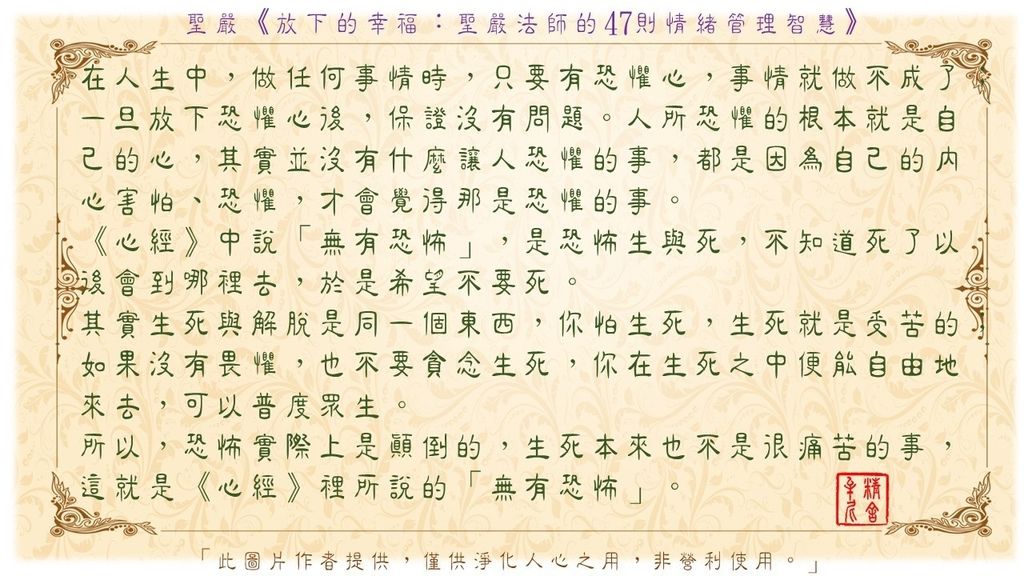 聖嚴《放下的幸福：聖嚴法師的47則情緒管理智慧》
在人生中，做任何事情時，只要有恐懼心，事情就做不成了，
一旦放下恐懼心後，保證沒有問題。人所恐懼的根本就是自
己的心，其實並沒有什麼讓人恐懼的事，都是因為自己的內
心害怕、恐懼，才會覺得那是恐懼的事。
《心經》中說「無有恐怖」，是恐怖生與死，不知道死了以
後會到哪裡去，於是希望不要死。
其實生死與解脫是同一個東西，你怕生死，生死就是受苦的，
如果沒有畏懼，也不要貪念生死，你在生死之中便能自由地
來去，可以普度眾生。
所以，恐怖實際上是顛倒的，生死本來也不是很痛苦的事，
這就是《心經》裡所說的「無有恐怖」。
「此圖片作者提供，僅供淨化人心之用，非營利使用。」